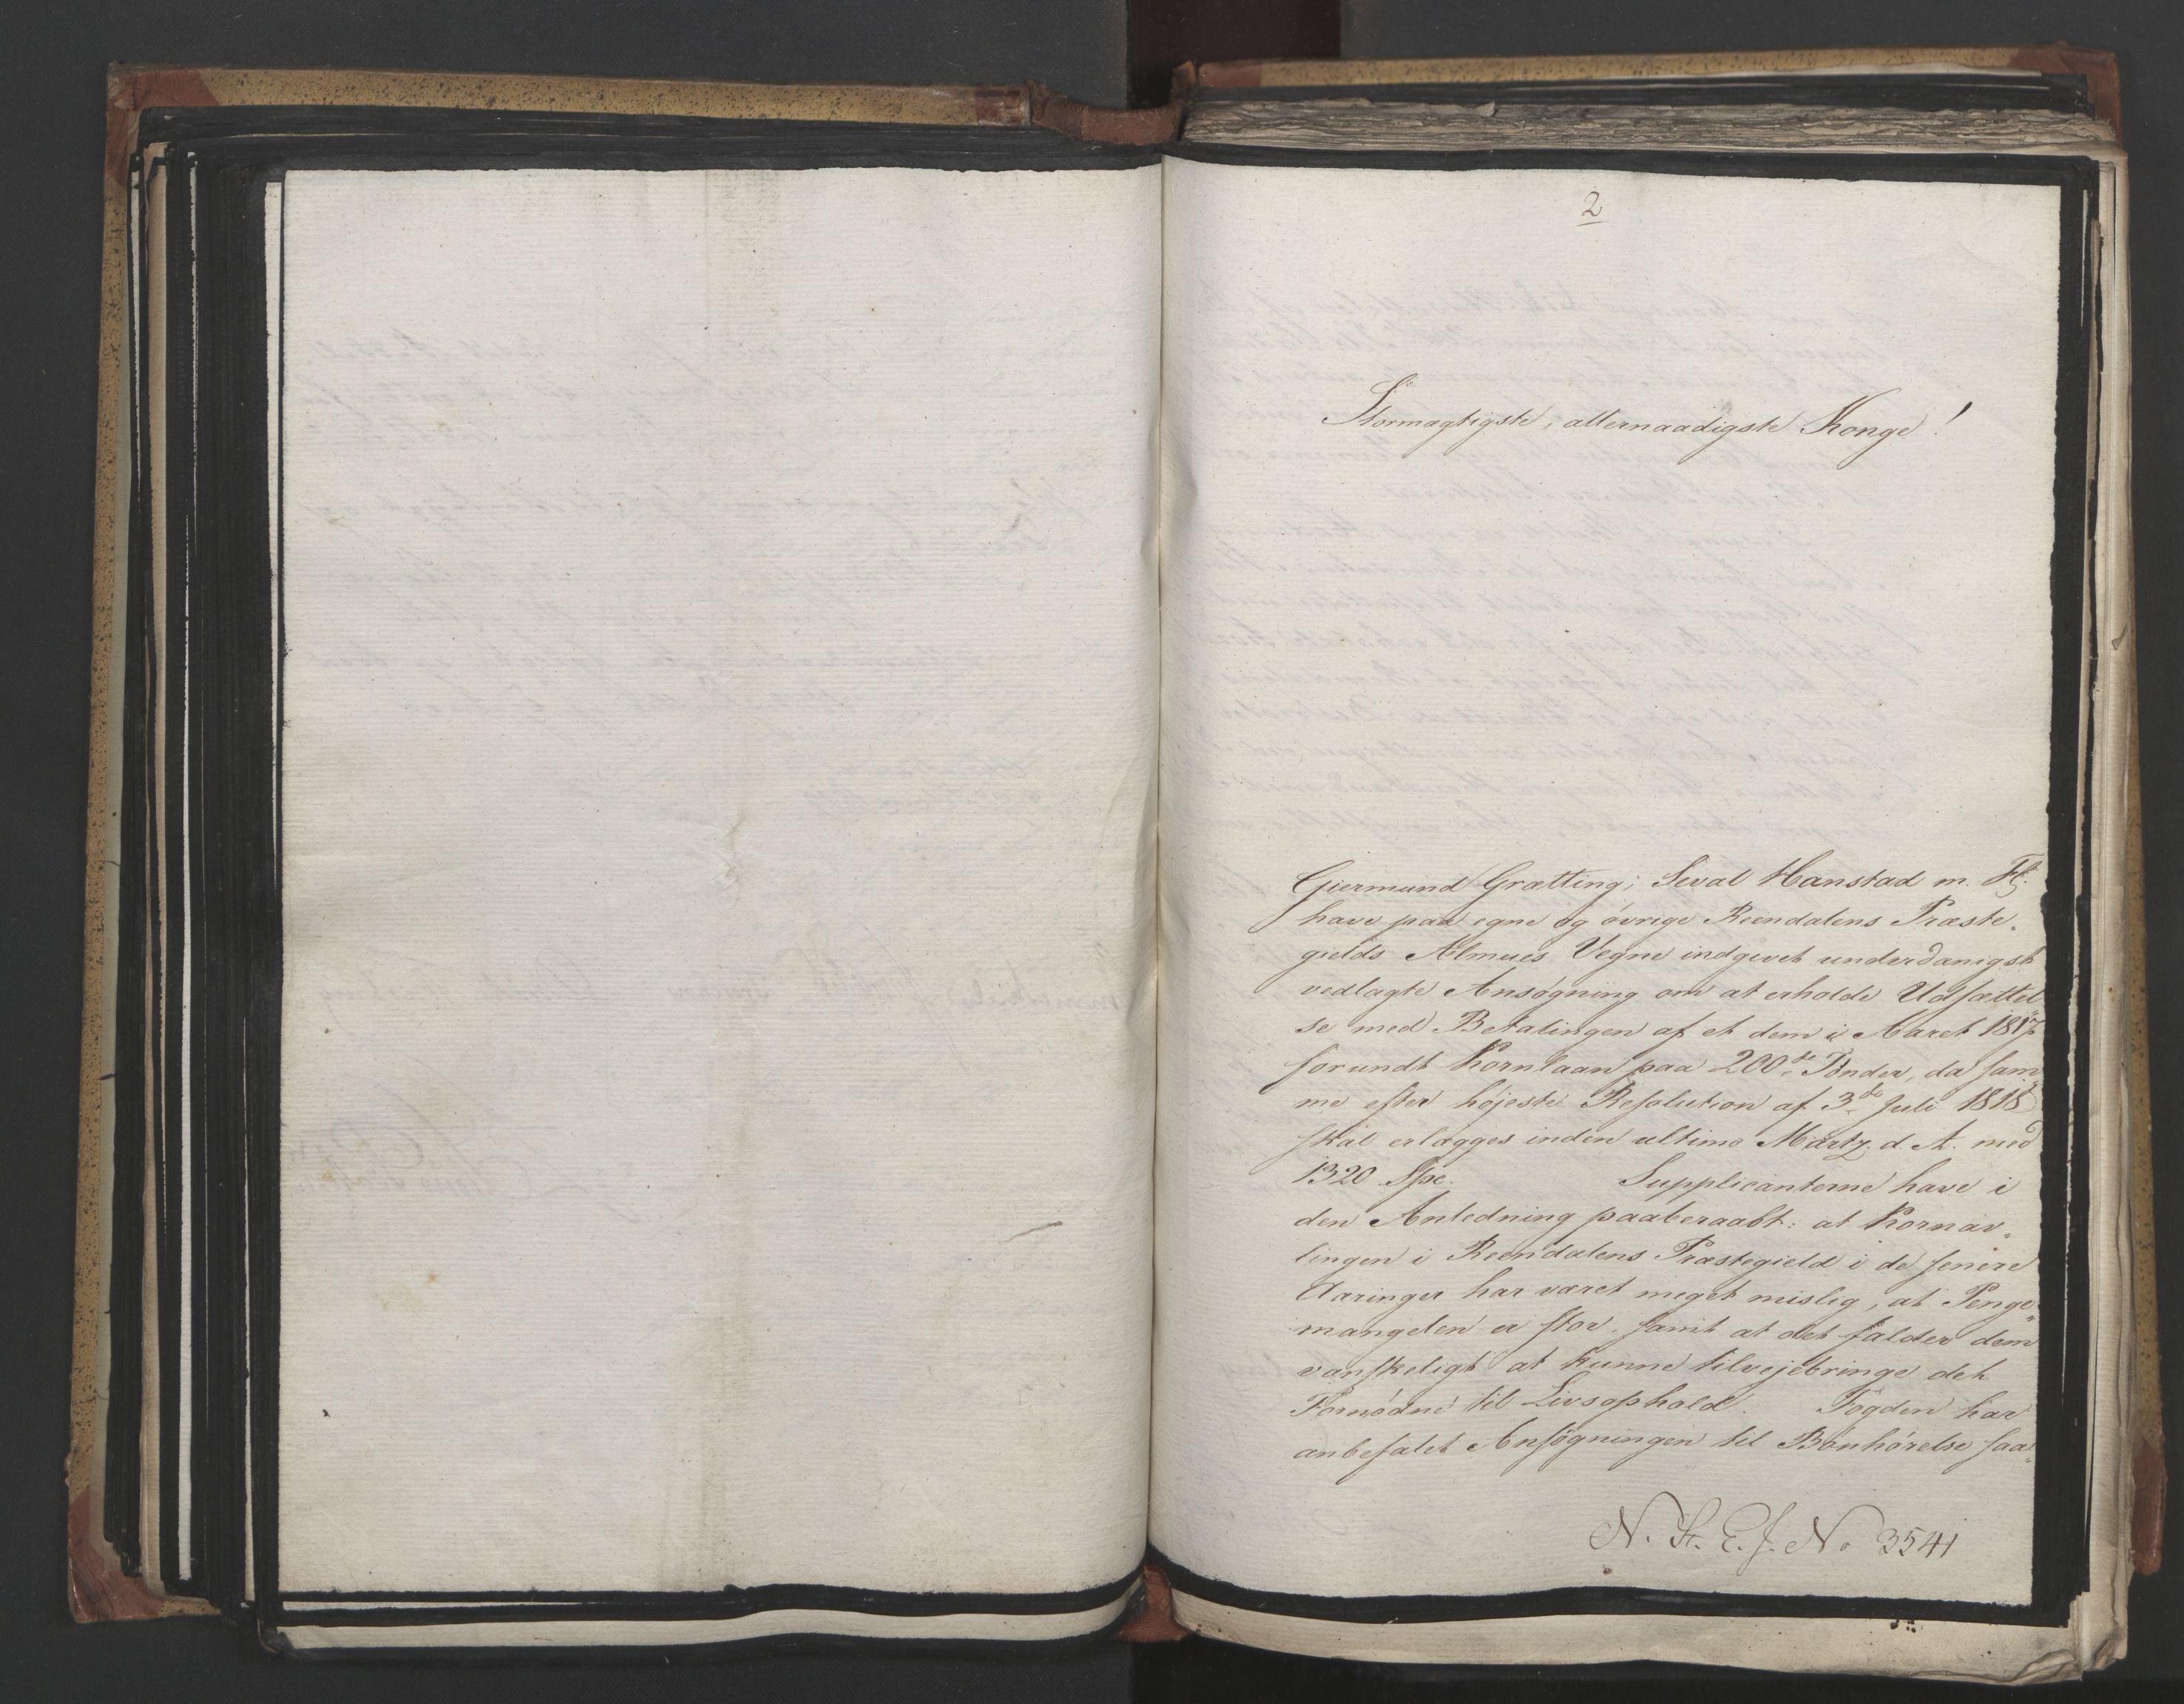 2
Stormægtigste, allernaadigste Konge!
Giermund Grætting, Seval Hanstad m. Fl.
have paa egne og øvrige Reendalens Præste-
gields Almues Vegne indgivet underdanigst
vedlagte Ansøgning om at erholde Udsættel
se med Betalingen af et dem i Aaret 1817
forundt Kornlaan paa 200de Tønder, da sam
me efter højeste Resolution af 3de Juli 1818
skal erlægges inden ultimo Martz. d. A. med
1320 Spc. Supplicanterne have i
den Anledning paaberaabt: at Kornav„
lingen i Reendalens Præstegield i de senere
Aaringer har været meget mislig, at Penge„
mangelen er stor, samt at det falder dem
vanskeligt at kunne tilvejebringe det
Fornødne til Livsophold. Fogden har
anbefalet Ansøgningen til Bønhørelse saa„
N. H. E. J. No 3541